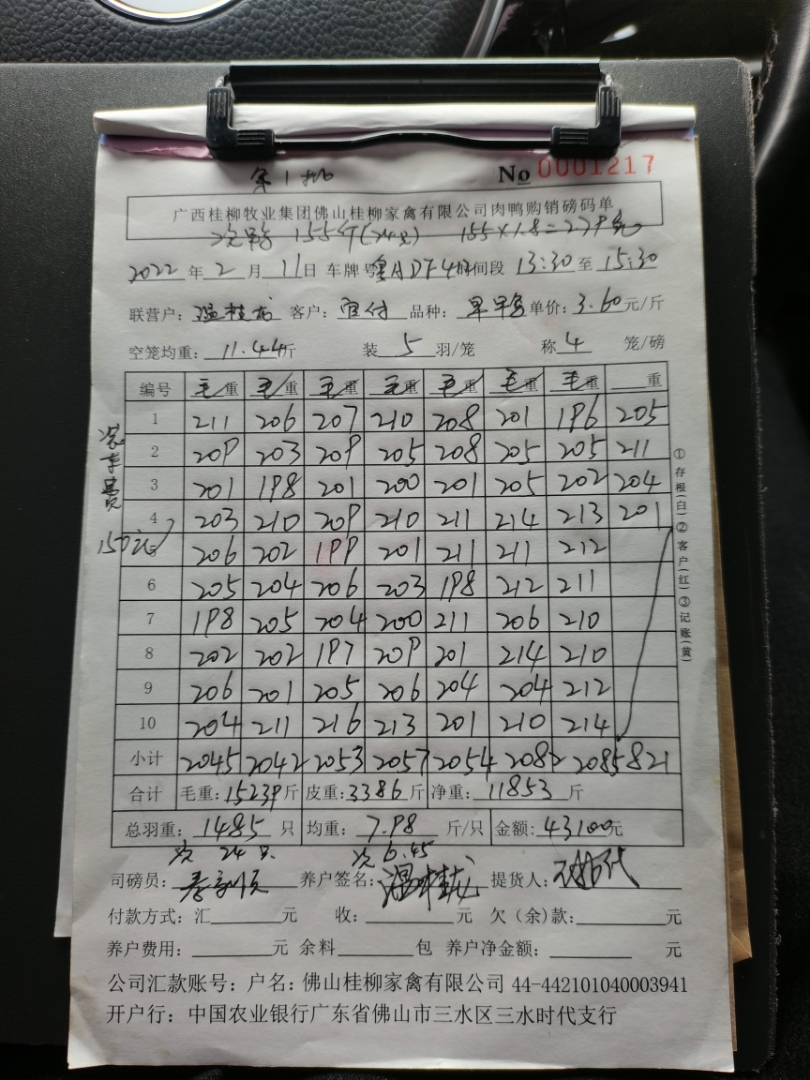 第1批
No 0001217
广西桂柳牧业集团佛山桂柳家禽有限公司肉鸭购销磅码单
次鸭 155斤(24只) 155×1.8=279元
2022年2月11日 车牌号 粤ADF4 时间段 13:30至15:30
联营户: 温桂龙 客户: 品种: 单价: 3.60元/斤
空笼均重: 11.44斤 装 5 羽/笼 称 4 笼/磅
编号 毛重 毛重 毛重 毛重 毛重 毛重 毛重 重
1 211 206 207 210 208 201 196 205
2 209 203 209 205 208 205 205 211
3 201 198 201 200 201 205 202 204
4 203 210 209 210 211 214 213 201
206 202 199 201 211 211 212
6 205 204 206 203 198 212 211
7 198 205 204 200 211 206 210
8 202 202 197 209 201 214 210
9 206 201 205 206 204 204 212
10 204 211 216 213 201 210 214
小计 2045 2042 2053 2057 2054 2082 2085 821
合计 毛重: 15239斤 皮重: 3386斤 净重: 11853斤
总羽重: 1485只 均重: 7.98斤/只 金额: 43100元
次 24只 次 6.45
司磅员: 养户签名: 温桂龙 提货人:
付款方式: 汇 元 收: 元 欠(余)款: 元
养户费用: 元 余料 包 养户净金额: 元
公司汇款账号: 户名: 佛山桂柳家禽有限公司 44-442101040003941
开户行: 中国农业银行广东省佛山市三水区三水时代支行
装车费
150元
①存根(白)②客户(红)③记账(黄)